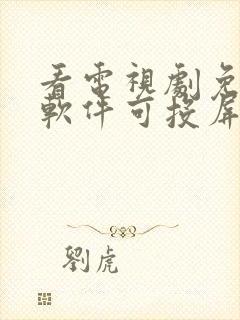 看電視劇免
軟件可投屏
劉虎